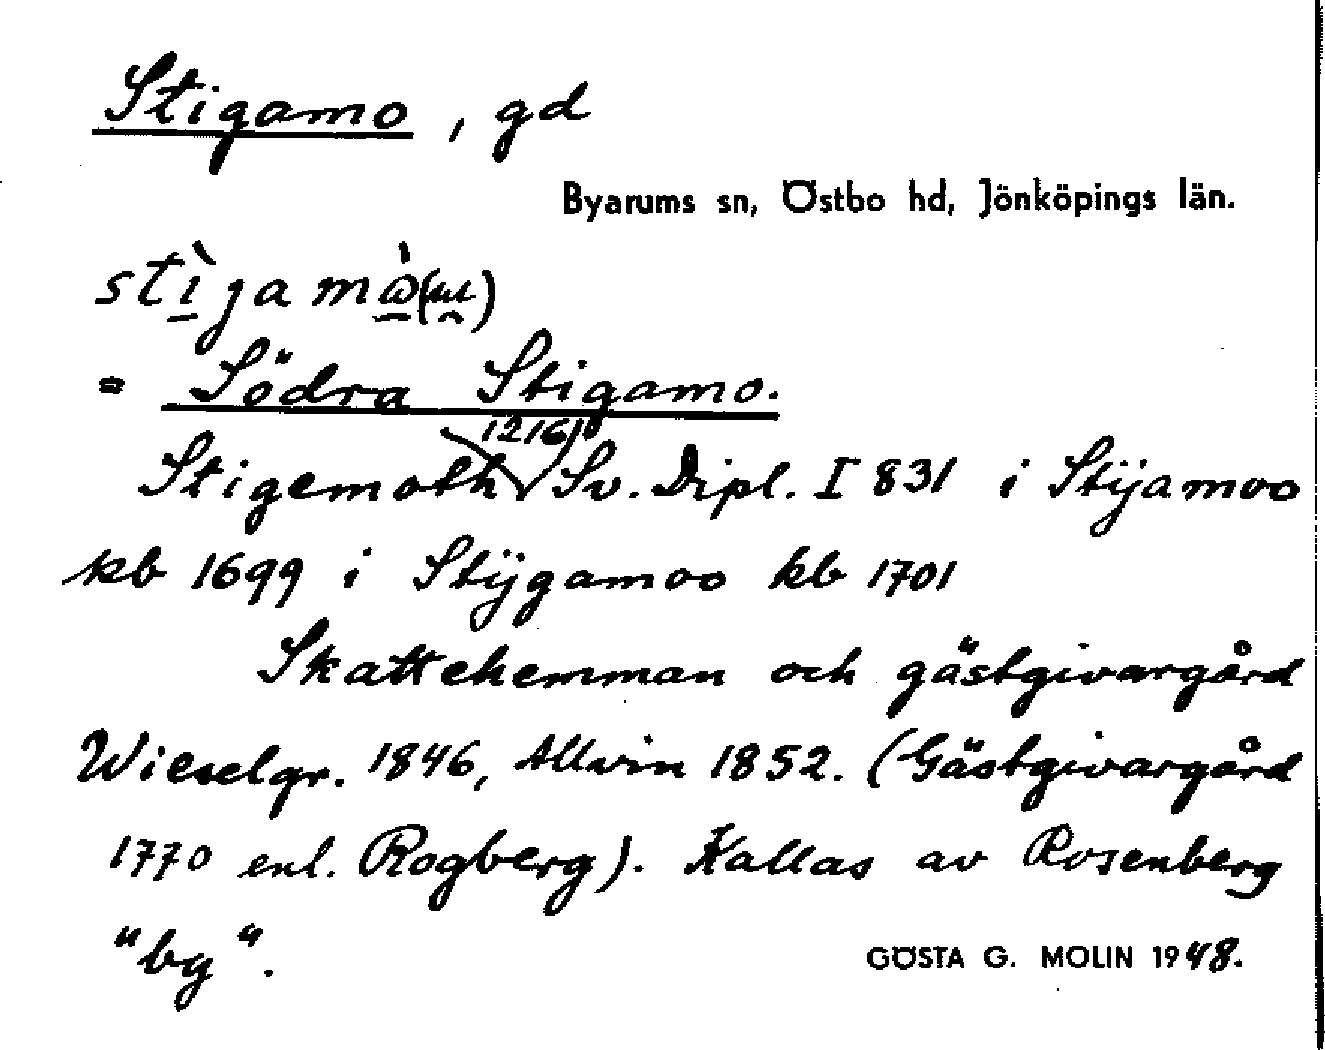 Stigamo, gd
Byarums sn, Östbo hd, Jönköpings län.
= Södra Stigamo.
1216
Stigemoth Sv. Dipl. I 831 i Stijamoo
kb 1699 i Stÿgamoo kb 1701
Skattehemman och gästgivargård
Wieselgr. 1846, Allvin 1852. (Gästgivargård
1770 enl. Rogberg). Kallas av Rosenberg
"by".
GÖSTA G. MOLIN 1948.